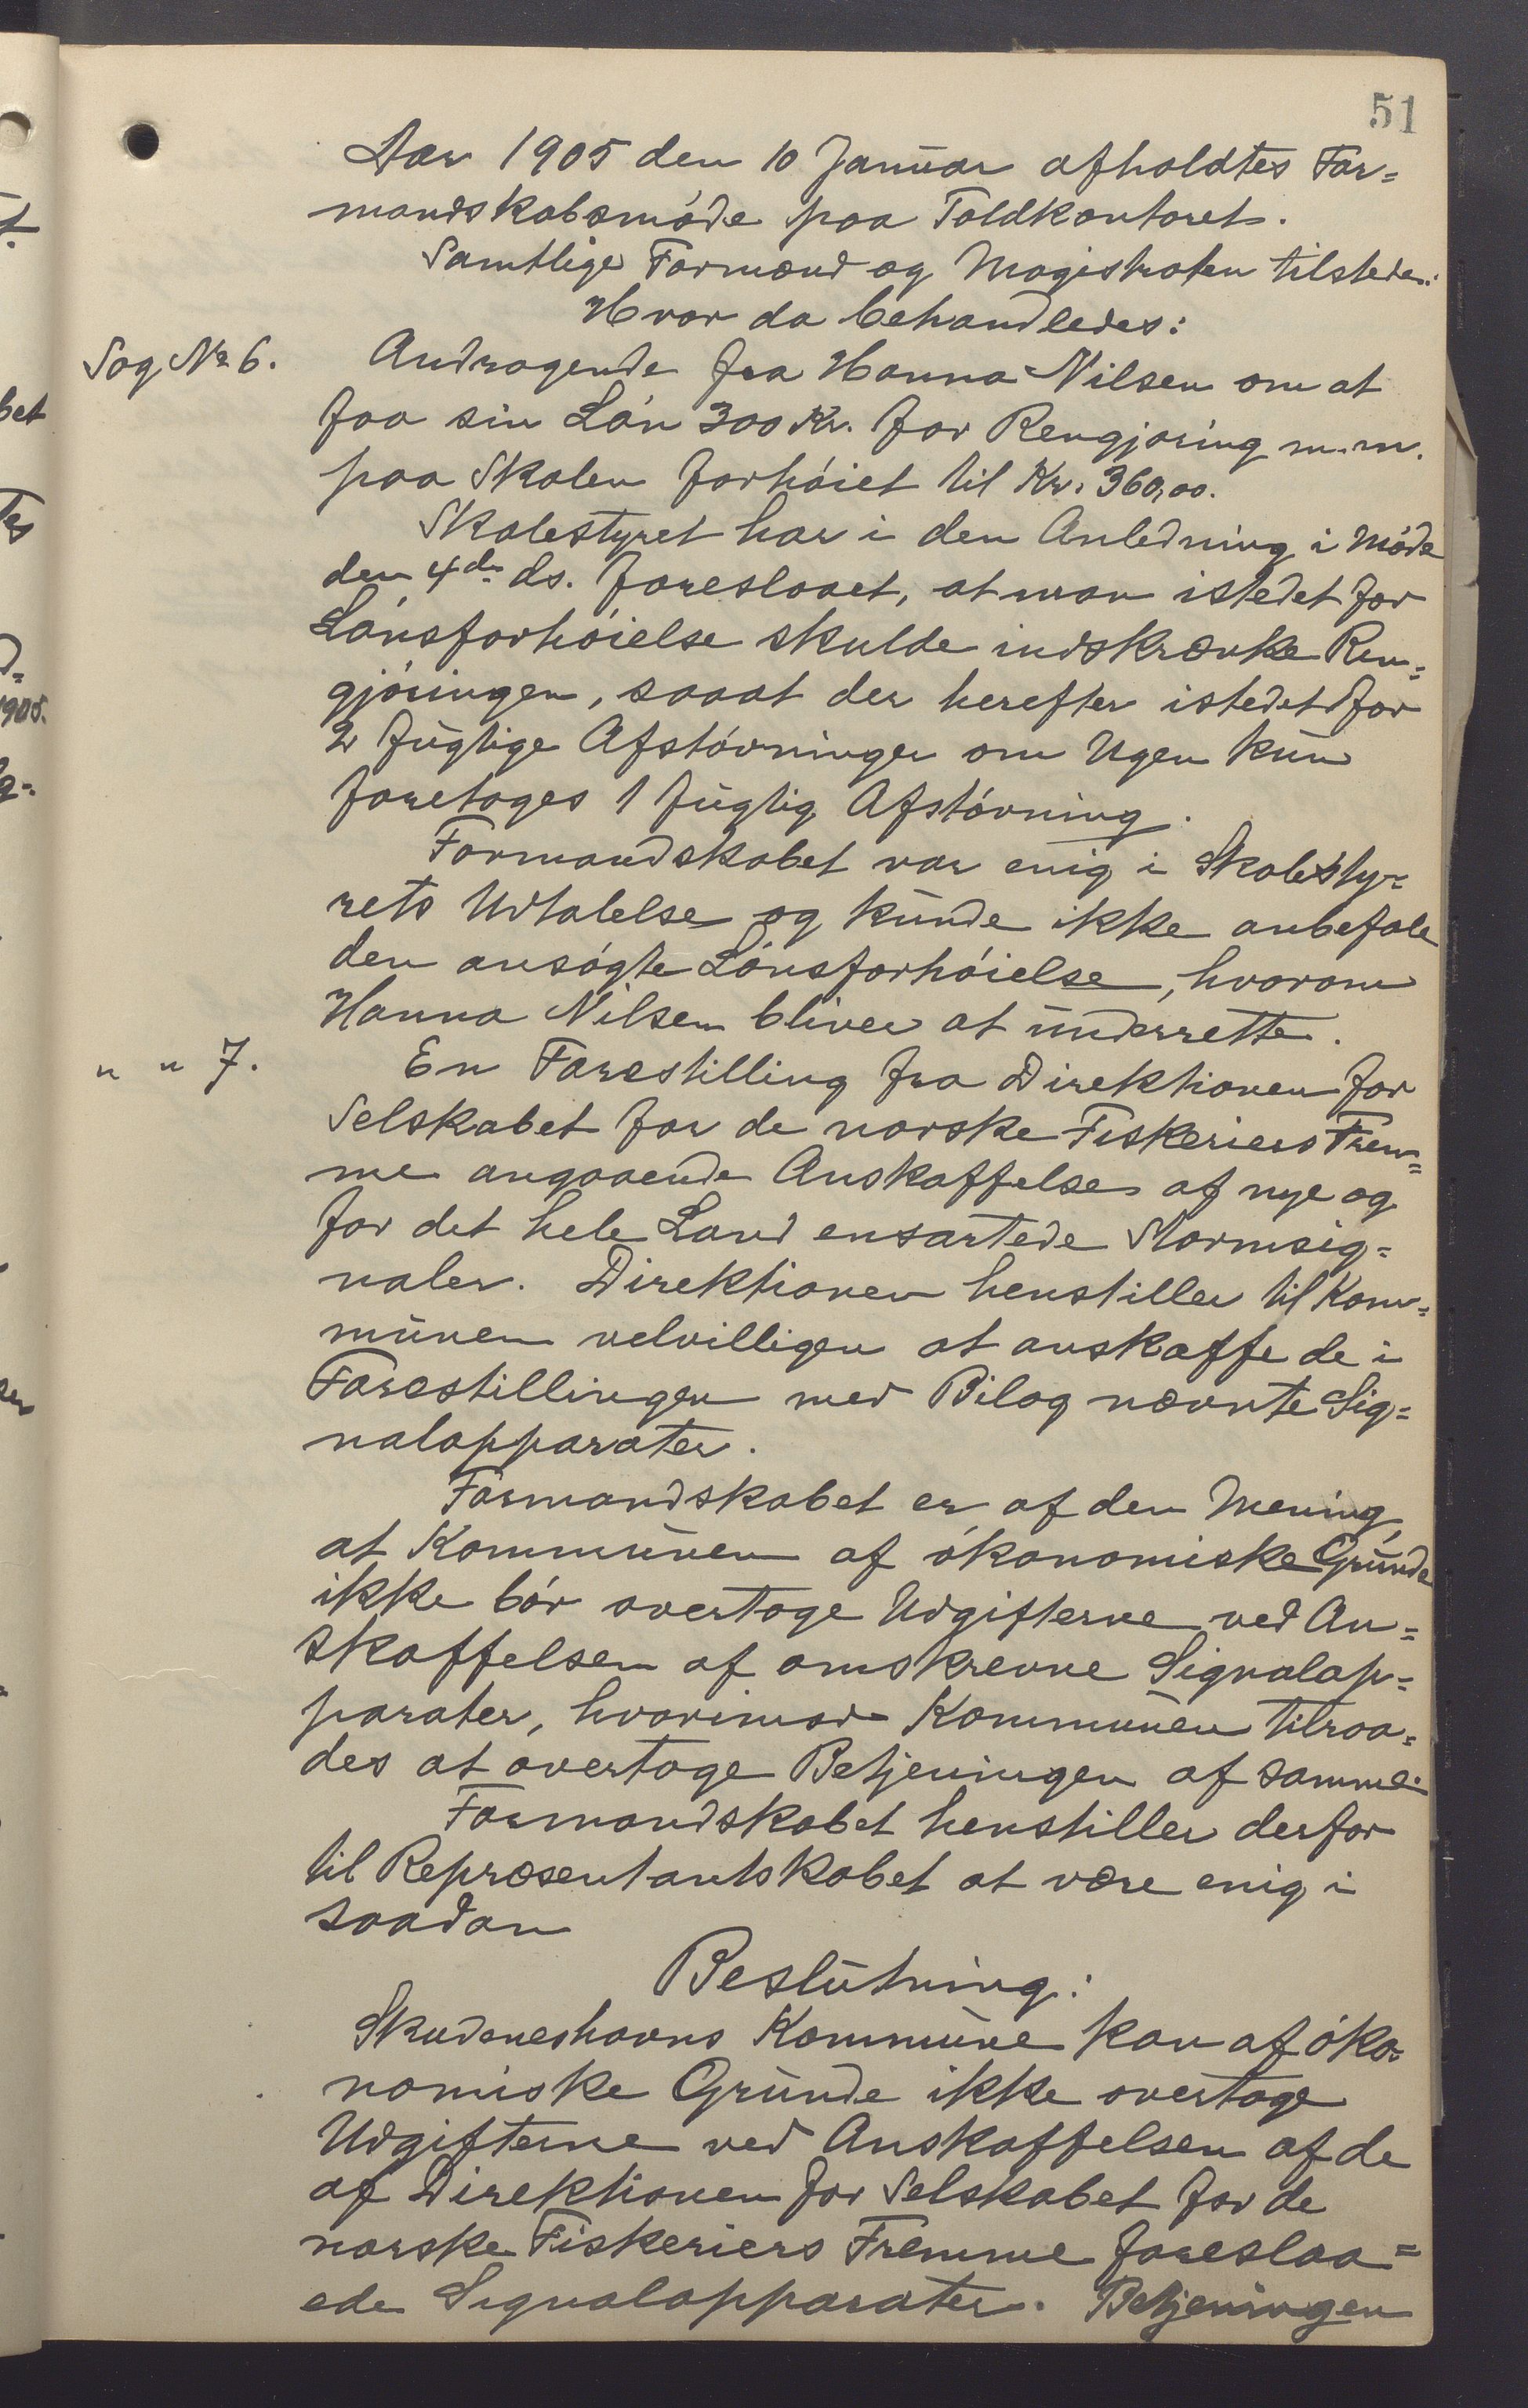 51
Aar 1905 den 10 Januar afholdtes For=
mandskabsmøde paa Toldkontoret.
Samtlige Formænd og Magistraten tilstede.
Hvor da behandledes:
Sag No 6. Andragende fra Hanna Nilsen om at
faa sin Løn 300 Kr. for Rengjøring m.m.
paa Skolen forhøiet til Kr. 360,00.
Skolestyret har i den Anledning i Møde
den 4de ds. foreslaaet, at man istedetfor
Lønsforhøielse skulde indskrænke Ren=
gjøringen, saaat der herefter istedetfor
2 fugtige Afstøvninger om Ugen kun
foretages 1 fugtig Afstøvning.
Formandskabet var enig i Skolesty=
rets Udtalelse og kunde ikke anbefale
den ansøgte Lønsforhøielse, hvorom
Hanna Nilsen bliver at underrette.
" " 7. En Forestilling fra Direktionen for
Selskabet for de norske Fiskeriers Frem=
me angaaende Anskaffelse af nye og
for det hele Land ensartede Stormsig=
naler. Direktionen henstiller til Kom=
munen velvilligen at anskaffe de i
Forestillingen med Bilag nævnte Sig=
nalapparater.
Formandskabet er af den Mening,
at Kommunen af økonomiske Grunde
ikke bør overtage Udgifterne ved An=
skaffelsen af omskrevne Signalap=
parater, hvorimod Kommunen tilraa=
des at overtage Betjeningen af samme.
Formandskabet henstiller derfor
til Repræsentantskabet at være enig i
saadan
Beslutning:
Skudeneshavns Kommune kan af øko=
nomiske Grunde ikke overtage
Udgifterne ved Anskaffelsen af de
af Direktionen for Selskabet for de
norske Fiskeriers Fremme foreslaa=
ede Signalapparater. Betjeningen